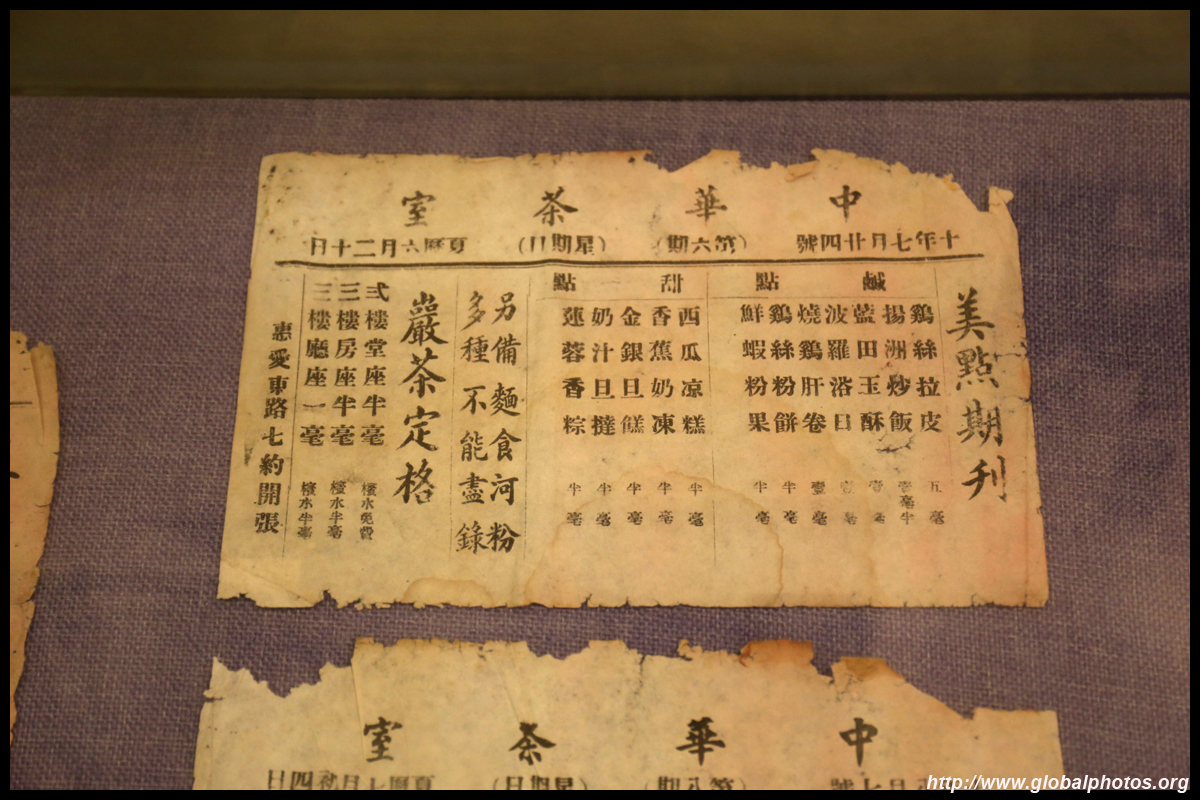 中華茶室
十年七月廿四號 (第六期) (星期日) 夏曆六月二十日
美點期刊
鹹點
鷄絲拉皮 五毫
揚洲炒飯 壹毫半
藍田玉酥 壹毫
波羅浴日 壹毫
燒鷄肝卷 壹毫
鷄絲粉餅 半毫
鮮蝦粉果 半毫
甜點
西瓜凉糕 半毫
香蕉奶凍 半毫
金銀旦餻 半毫
奶汁旦撻 半毫
蓮蓉香粽 半毫
另備麵食河粉
多種不能盡錄
嚴茶定格
弍樓堂座半毫 檯水免費
三樓房座半毫 檯水半毫
三樓廳座一毫 檯水半毫
惠愛東路七約開張
中華茶室
月七號 (第八期) (星期日) 夏曆七月初四日
http://www.globalphotos.org